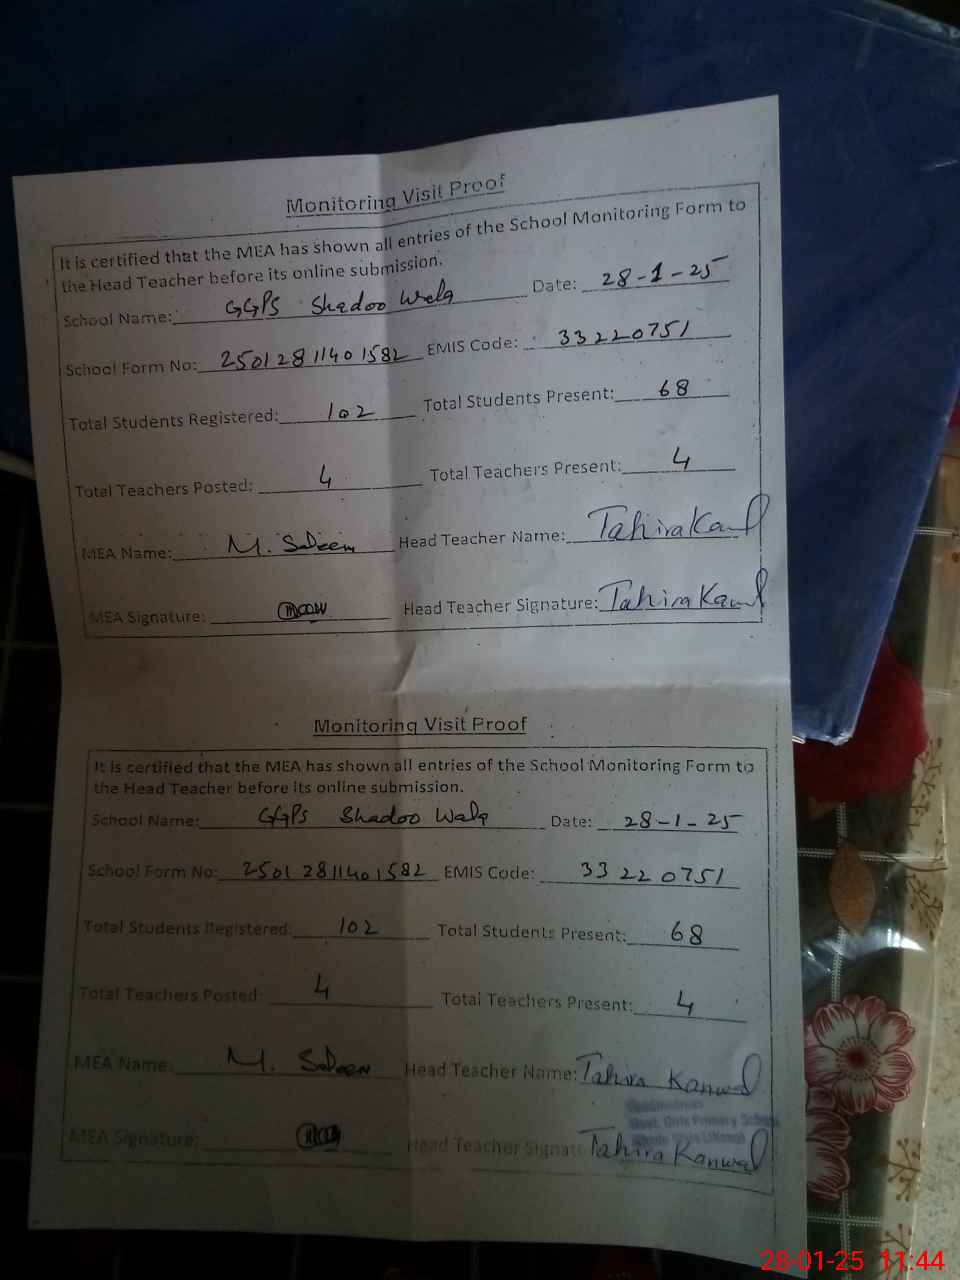 Monitoring Visit Proof
It is certified that the MEA has shown all entries of the School Monitoring Form to
the Head Teacher before its online submission.
School Name: GGPS Shadoo Wala Date: 28-1-25
School Form No: 25012811401582 EMIS Code: 33220751
Total Students Registered: 102 Total Students Present: 68
Total Teachers Posted: 4 Total Teachers Present: 4
MEA Name: M. Saleem Head Teacher Name: Tahira Kanwal
MEA Signature: Head Teacher Signature: Tahira Kanwal
Monitoring Visit Proof
It is certified that the MEA has shown all entries of the School Monitoring Form to
the Head Teacher before its online submission.
School Name: GGPS Shadoo Wala Date: 28-1-25
School Form No: 25012811401582 EMIS Code: 33220751
Total Students Registered: 102 Total Students Present: 68
Total Teachers Posted: 4 Total Teachers Present: 4
MEA Name: M. Saleem Head Teacher Name: Tahira Kanwal
Govt. Girls Primary School
MEA Signature: Head Teacher Signatu Tahira Kanwal
28-01-25 11:44